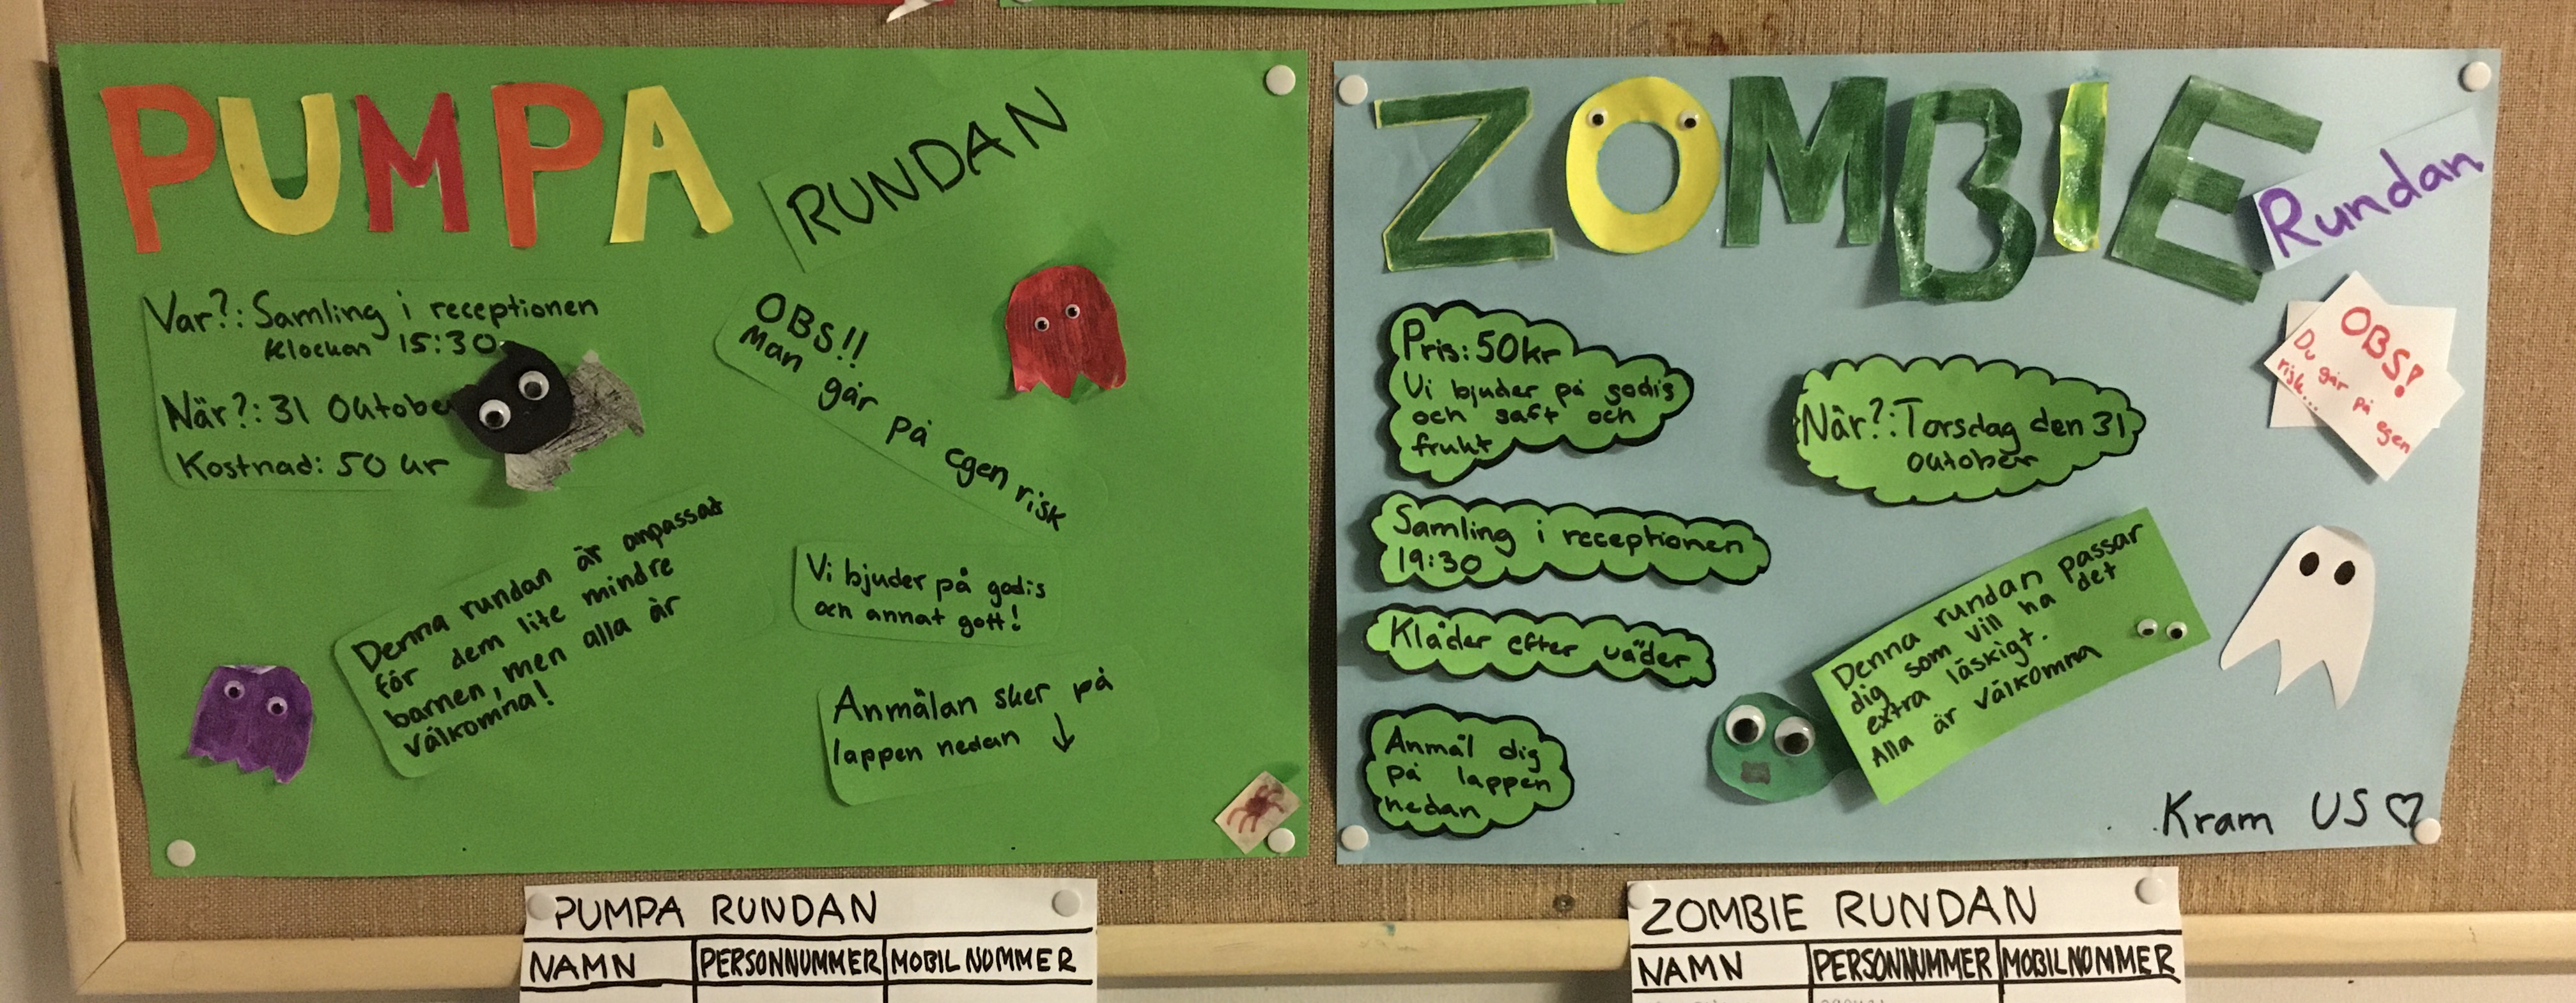 PUMPA
RUNDAN
Var?: Samling i receptionen
Klockan 15:30
När?: 31 Oktobe
Kostnad: 50 kr
OBS!!
Man går på egen risk
Denna rundan är anpassat
för dem lite mindre
barnen, men alla är
välkomna!
Vi bjuder på godis
och annat gott!
Anmälan sker på
lappen nedan ↓
PUMPA RUNDAN
NAMN PERSONNUMMER MOBILNUMMER
ZOMBIE
Rundan
Pris: 50kr
Vi bjuder på godis
och saft och
frukt
När?: Torsdag den 31
oktober
OBS!
Du går på egen
risk...
Samling i receptionen
19:30
Kläder efter väder
Anmäl dig
på lappen
nedan
Denna rundan passar
dig som vill ha det
extra läskigt.
Alla är välkomna
Kram US ♡
ZOMBIE RUNDAN
NAMN PERSONNUMMER MOBILNUMMER